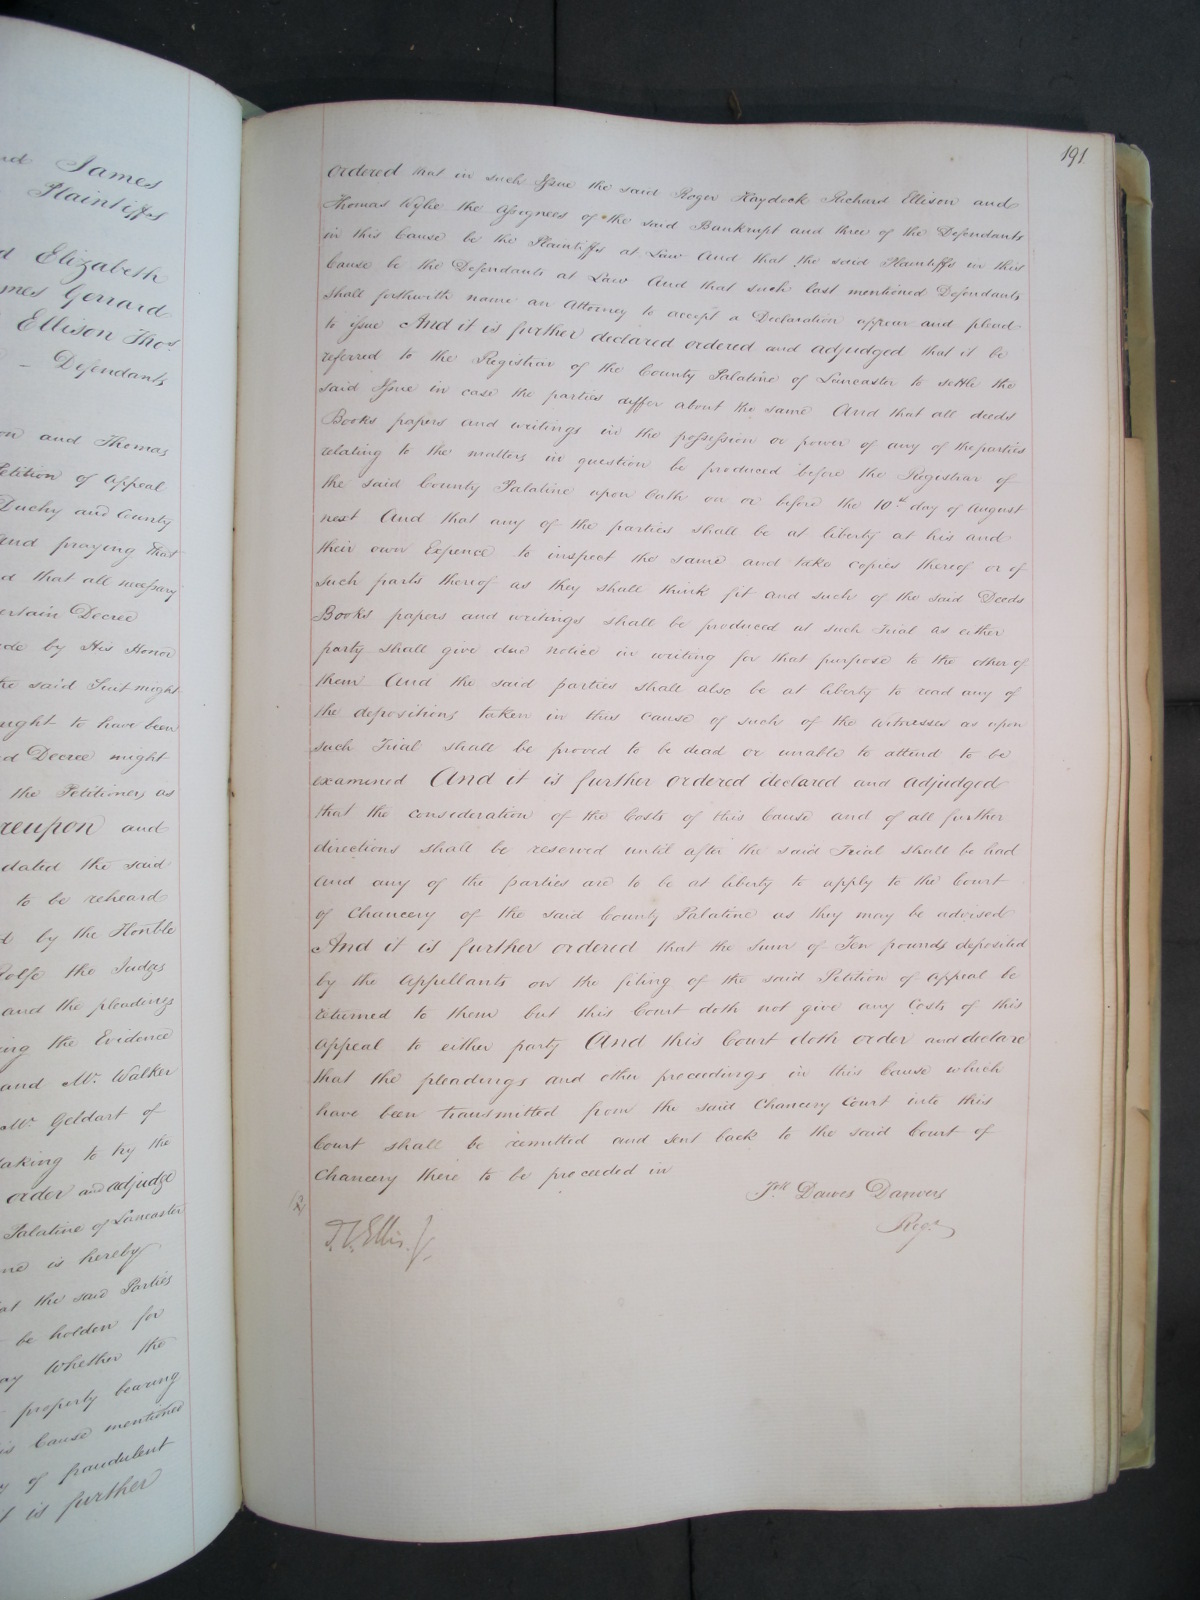 James
Plaintiffs
Elizabeth
Gerrard
Ellison Thos
Defendants
and Thomas
Petition of Appeal
Duchy and County
and praying that
that all necessary
certain Decree
by His Honor
the said Suit might
ought to have been
Decree might
the Petitioners as
and
dated the said
to be reheard
by the Honble
Rolfe the Judges
and the pleadings
the Evidence
and Mr. Walker
Mr. Geldart of
to try the
order and adjudge
Palatine of Lancaster
is hereby
the said Parties
be holden for
Whether the
property bearing
Cause mentioned
of fraudulent
is further
191
ordered that in such Issue the said Roger Haydock Richard Ellison and
Thomas Wylie the Assignees of the said Bankrupt and three of the Defendants
in this Cause be the Plaintiffs at Law And that the said Plaintiffs in this
Cause be the Defendants at Law And that such last mentioned Defendants
shall forthwith name an Attorney to accept a Declaration appear and plead
to issue And it is further declared ordered and adjudged that it be
referred to the Registrar of the County Palatine of Lancaster to settle the
said Issue in case the parties differ about the same And that all deeds
Books papers and writings in the possession or power of any of the parties
relating to the matters in question be produced before the Registrar of
the said County Palatine upon Oath on or before the 10th day of August
next And that any of the parties shall be at liberty at his and
their own Expence to inspect the same and take copies thereof or of
such parts thereof as they shall think fit and such of the said Deeds
Books papers and writings shall be produced at such Trial as either
party shall give due notice in writing for that purpose to the other of
them And the said parties shall also be at liberty to read any of
the depositions taken in this cause of such of the Witnesses as upon
such Trial shall be proved to be dead or unable to attend to be
examined And it is further ordered declared and adjudged
that the consideration of the Costs of this Cause and of all further
directions shall be reserved until after the said Trial shall be had
and any of the parties are to be at liberty to apply to the Court
of Chancery of the said County Palatine as they may be advised
And it is further ordered that the Sum of Ten pounds deposited
by the Appellants on the filing of the said Petition of Appeal be
returned to them but this Court doth not give any Costs of this
appeal to either party And this Court doth order and declare
that the pleadings and other proceedings in this Cause which
have been transmitted from the said Chancery Court into this
Court shall be remitted and sent back to the said Court of
Chancery there to be proceeded in
Fredk Dawes Danvers
Regr
T. F. Ellis